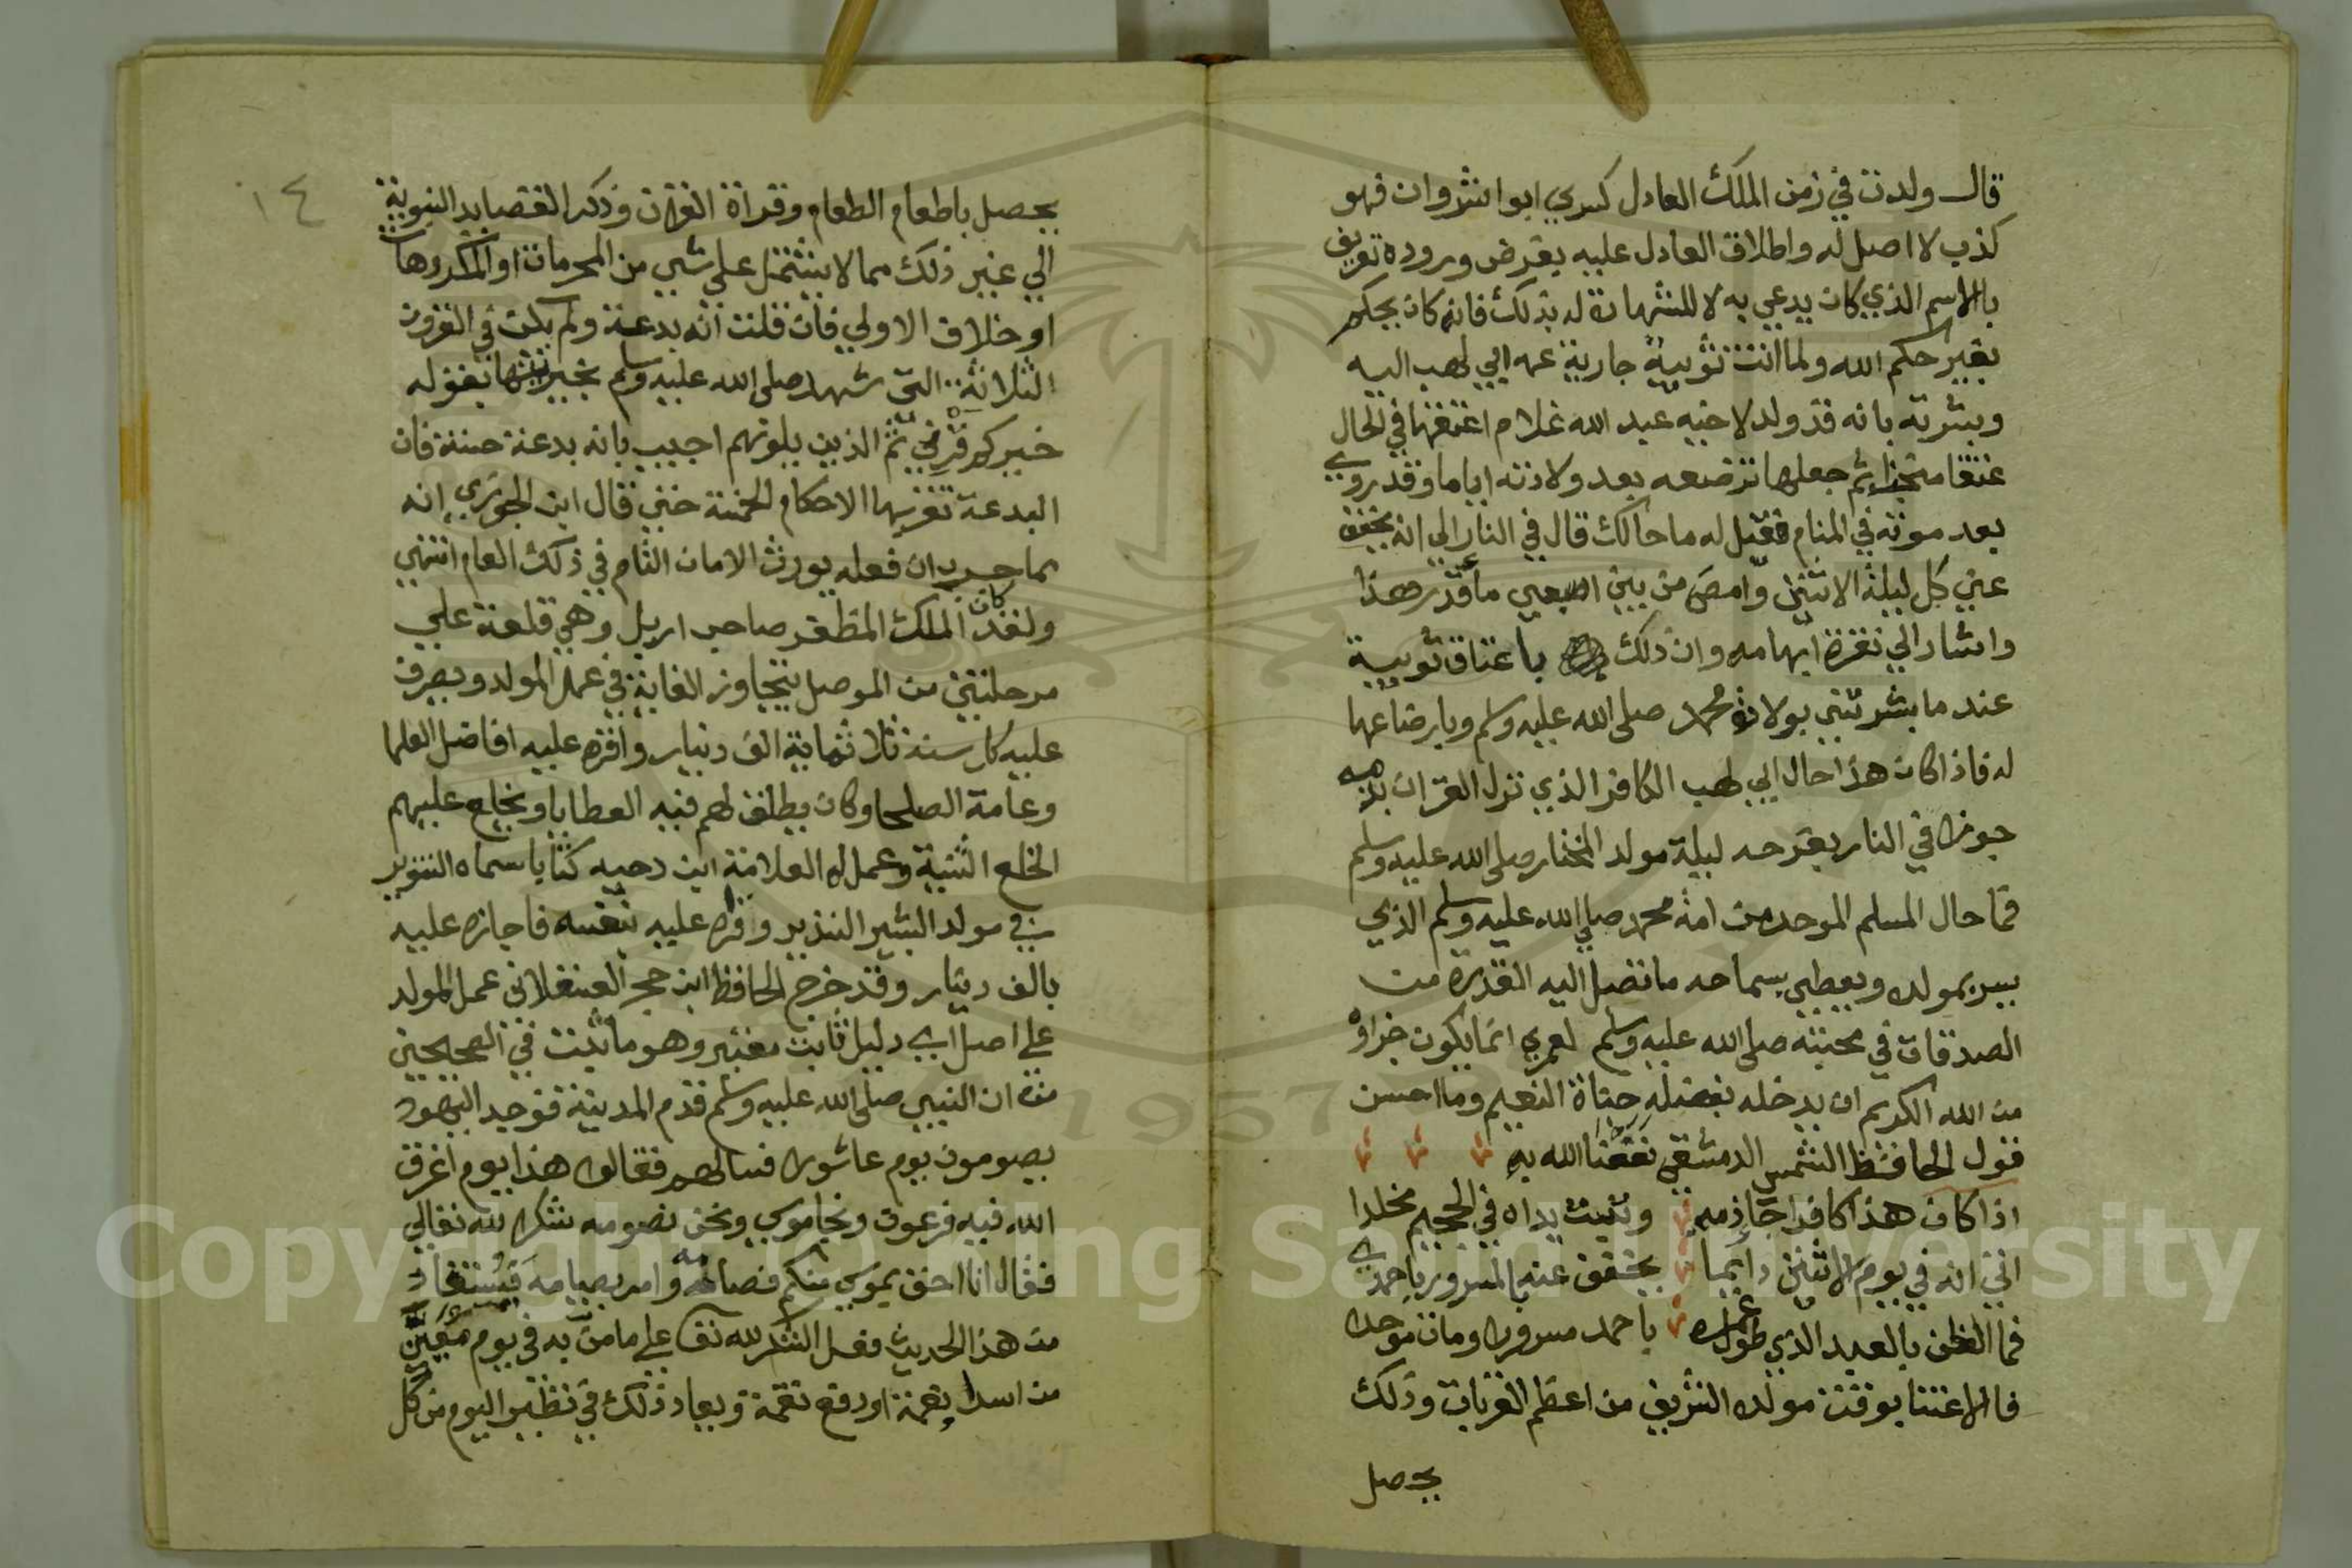 قال ولدت في زمن الملك العادل كسري ابو انشروان فهو
كذب لا اصل له واطلاق العادل عليه بفرض وروده تعريف
بالاسم الذي كان يدعي به لا للشهادة له بذلك فانه كان يحكم
بغير حكم الله ولما اتت ثويبة جارية عمه ابي لهب اليه
وبشرته بانه قد ولد لاخيه عبد الله غلام اعتقها في الحال
عتقا منجزا ثم جعلها ترضعه بعد ولادته اياما وقد روي
بعد موته في المنام فقيل له ما حالك قال في النار الي انه يخفف
عني كل ليلة الاثنين وامص من بين اصبعي ماء قدر هذا
واشار الي نقرة ابهامه وان ذلك باعتاق ثويبة
عند ما بشرتني بولادة محمد صلي الله عليه وسلم وبارضاعها
له فاذا كان هذا حال ابي لهب الكافر الذي نزل القران بذمه
جوزي في النار بفرحه ليلة مولد المختار صلي الله عليه وسلم
فما حال المسلم الموحد من امة محمد صلي الله عليه وسلم الذي
يسر بمولده ويعطي بسماحه ما تصل اليه القدرة من
الصدقات في محبته صلي الله عليه وسلم لعمري انما يكون جزاؤه
من الله الكريم ان يدخله بفضله جناة النعيم وما احسن
قول الحافظ الشمس الدمشقي نفعنا الله به
اذا كان هذا كافرا جاء ذمه وتبت يداه في الجحيم مخلدا
اتي انه في يوم الاثنين دايما يخفف عنه بالسرور باحمدي
فما الظن بالعبد الذي طول عمره باحمد مسرورا ومات موحدا
فالاعتنا بوقت مولده الشريف من اعظم القربات وذلك
يحصل
١٤
يحصل باطعام الطعام وقراة القران وذكر القصايد النبوية
الي غير ذلك مما لا يشتمل علي شي من المحرمات او المكروهات
او خلاف الاولي فان قلت انه بدعة ولم يكن في القرون
الثلاثة التي شهد صلي الله عليه وسلم بخيريتها بقوله
خيركم قرني ثم الذين يلونهم اجيب بانه بدعة حسنة فان
البدعة تعتريها الاحكام الخمسة حتي قال ابن الجوزي انه
مما جرب ان فعله يورث الامان التام في ذلك العام انتهي
ولقد كان الملك المظفر صاحب اربل وهي قلعة علي
مرحلتين من الموصل يتجاوز الغاية في عمل المولد ويصرف
عليه كل سنة ثلاثماية الف دينار واقره عليه افاضل العلما
وعامة الصلحا وكان يطلق لهم فيه العطايا ويخلع عليهم
الخلع السنية وعمل له العلامة ابن دحيه كتابا سماه التنوير
في مولد البشير النذير وقراه عليه بنفسه فاجازه عليه
بالف دينار وقد خرج الحافظ ابن حجر العسقلاني عمل المولد
علي اصل اي دليل ثابت معتبر وهو ما ثبت في الصحيحين
من ان النبي صلي الله عليه وسلم قدم المدينة فوجد اليهود
يصومون يوم عاشورا فسالهم فقالوا هذا يوم اغرق
الله فيه فرعون ونجا موسي ونحن نصومه شكرا لله تعالي
فقال انا احق بموسي منكم فصامه وامر بصيامه فيستفاد
من هذا الحديث فعل الشكر لله تعا علي ما من به في يوم معين
من اسداء نعمة او دفع نقمة ويعاد ذلك في نظير اليوم من كل